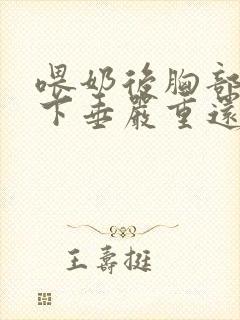 喂奶後胸部
下垂嚴重還
王壽挺